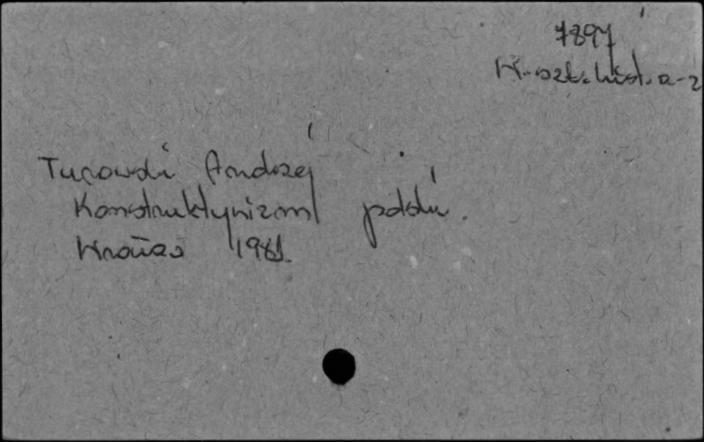 7897
W-szt. hist. a-z
Turowski Andrzej
Konstruktywizm polski.
Wrocław 1981.